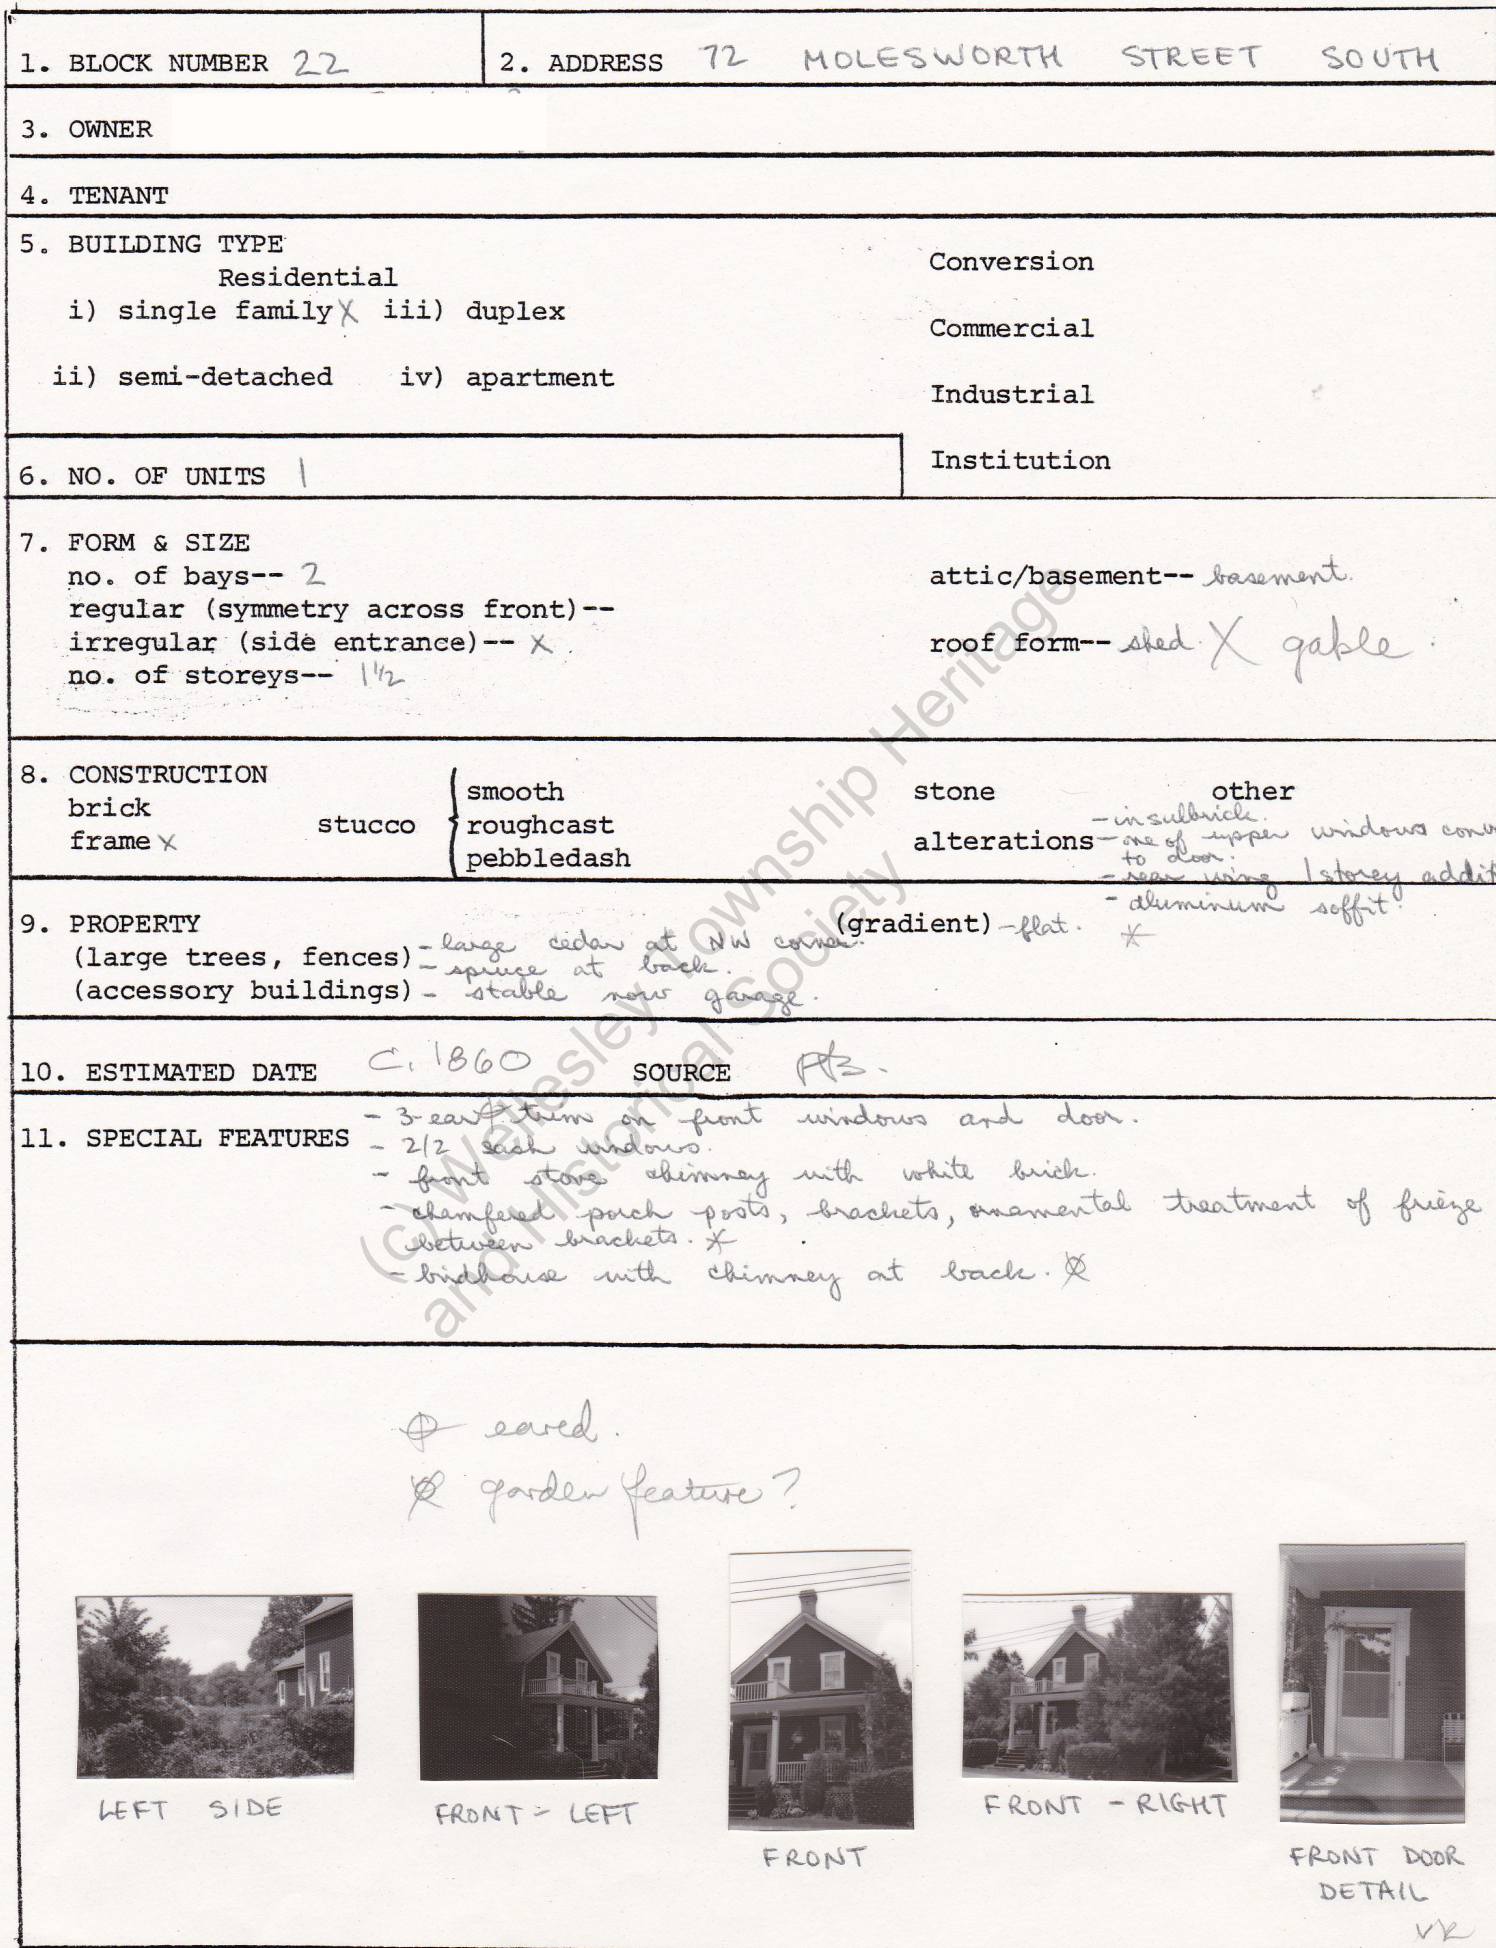 1. BLOCK NUMBER 22
2. ADDRESS 72 MOLESWORTH STREET SOUTH
3. OWNER
4. TENANT
5. BUILDING TYPE
Residential
i) single family X iii) duplex
ii) semi-detached iv) apartment
Conversion
Commercial
Industrial
Institution
6. NO. OF UNITS 1
7. FORM & SIZE
no. of bays-- 2
regular (symmetry across front)--
irregular (side entrance)-- X
no. of storeys-- 1½
attic/basement-- basement.
roof form-- shed. X gable.
8. CONSTRUCTION
brick
frame X
stucco
smooth
roughcast
pebbledash
stone
other
alterations
- insulbrick.
- one of upper windows conv
to door.
- rear wing 1 storey addit
- aluminum soffit.
*
9. PROPERTY
(gradient) - flat.
(large trees, fences) - large cedar at NW corner.
- spruce at back.
(accessory buildings) - stable now garage.
10. ESTIMATED DATE C. 1860 SOURCE
11. SPECIAL FEATURES
- 3-ear trim on front windows and door.
- 2/2 sash windows.
- front stove chimney with white brick.
- chamfered porch posts, brackets, ornamental treatment of frieze
between brackets. *
- birdhouse with chimney at back.
eared.
garden feature?
LEFT SIDE
FRONT - LEFT
FRONT
FRONT - RIGHT
FRONT DOOR
DETAIL
VR
(c) Wellesley Township Heritage
and Historical Society